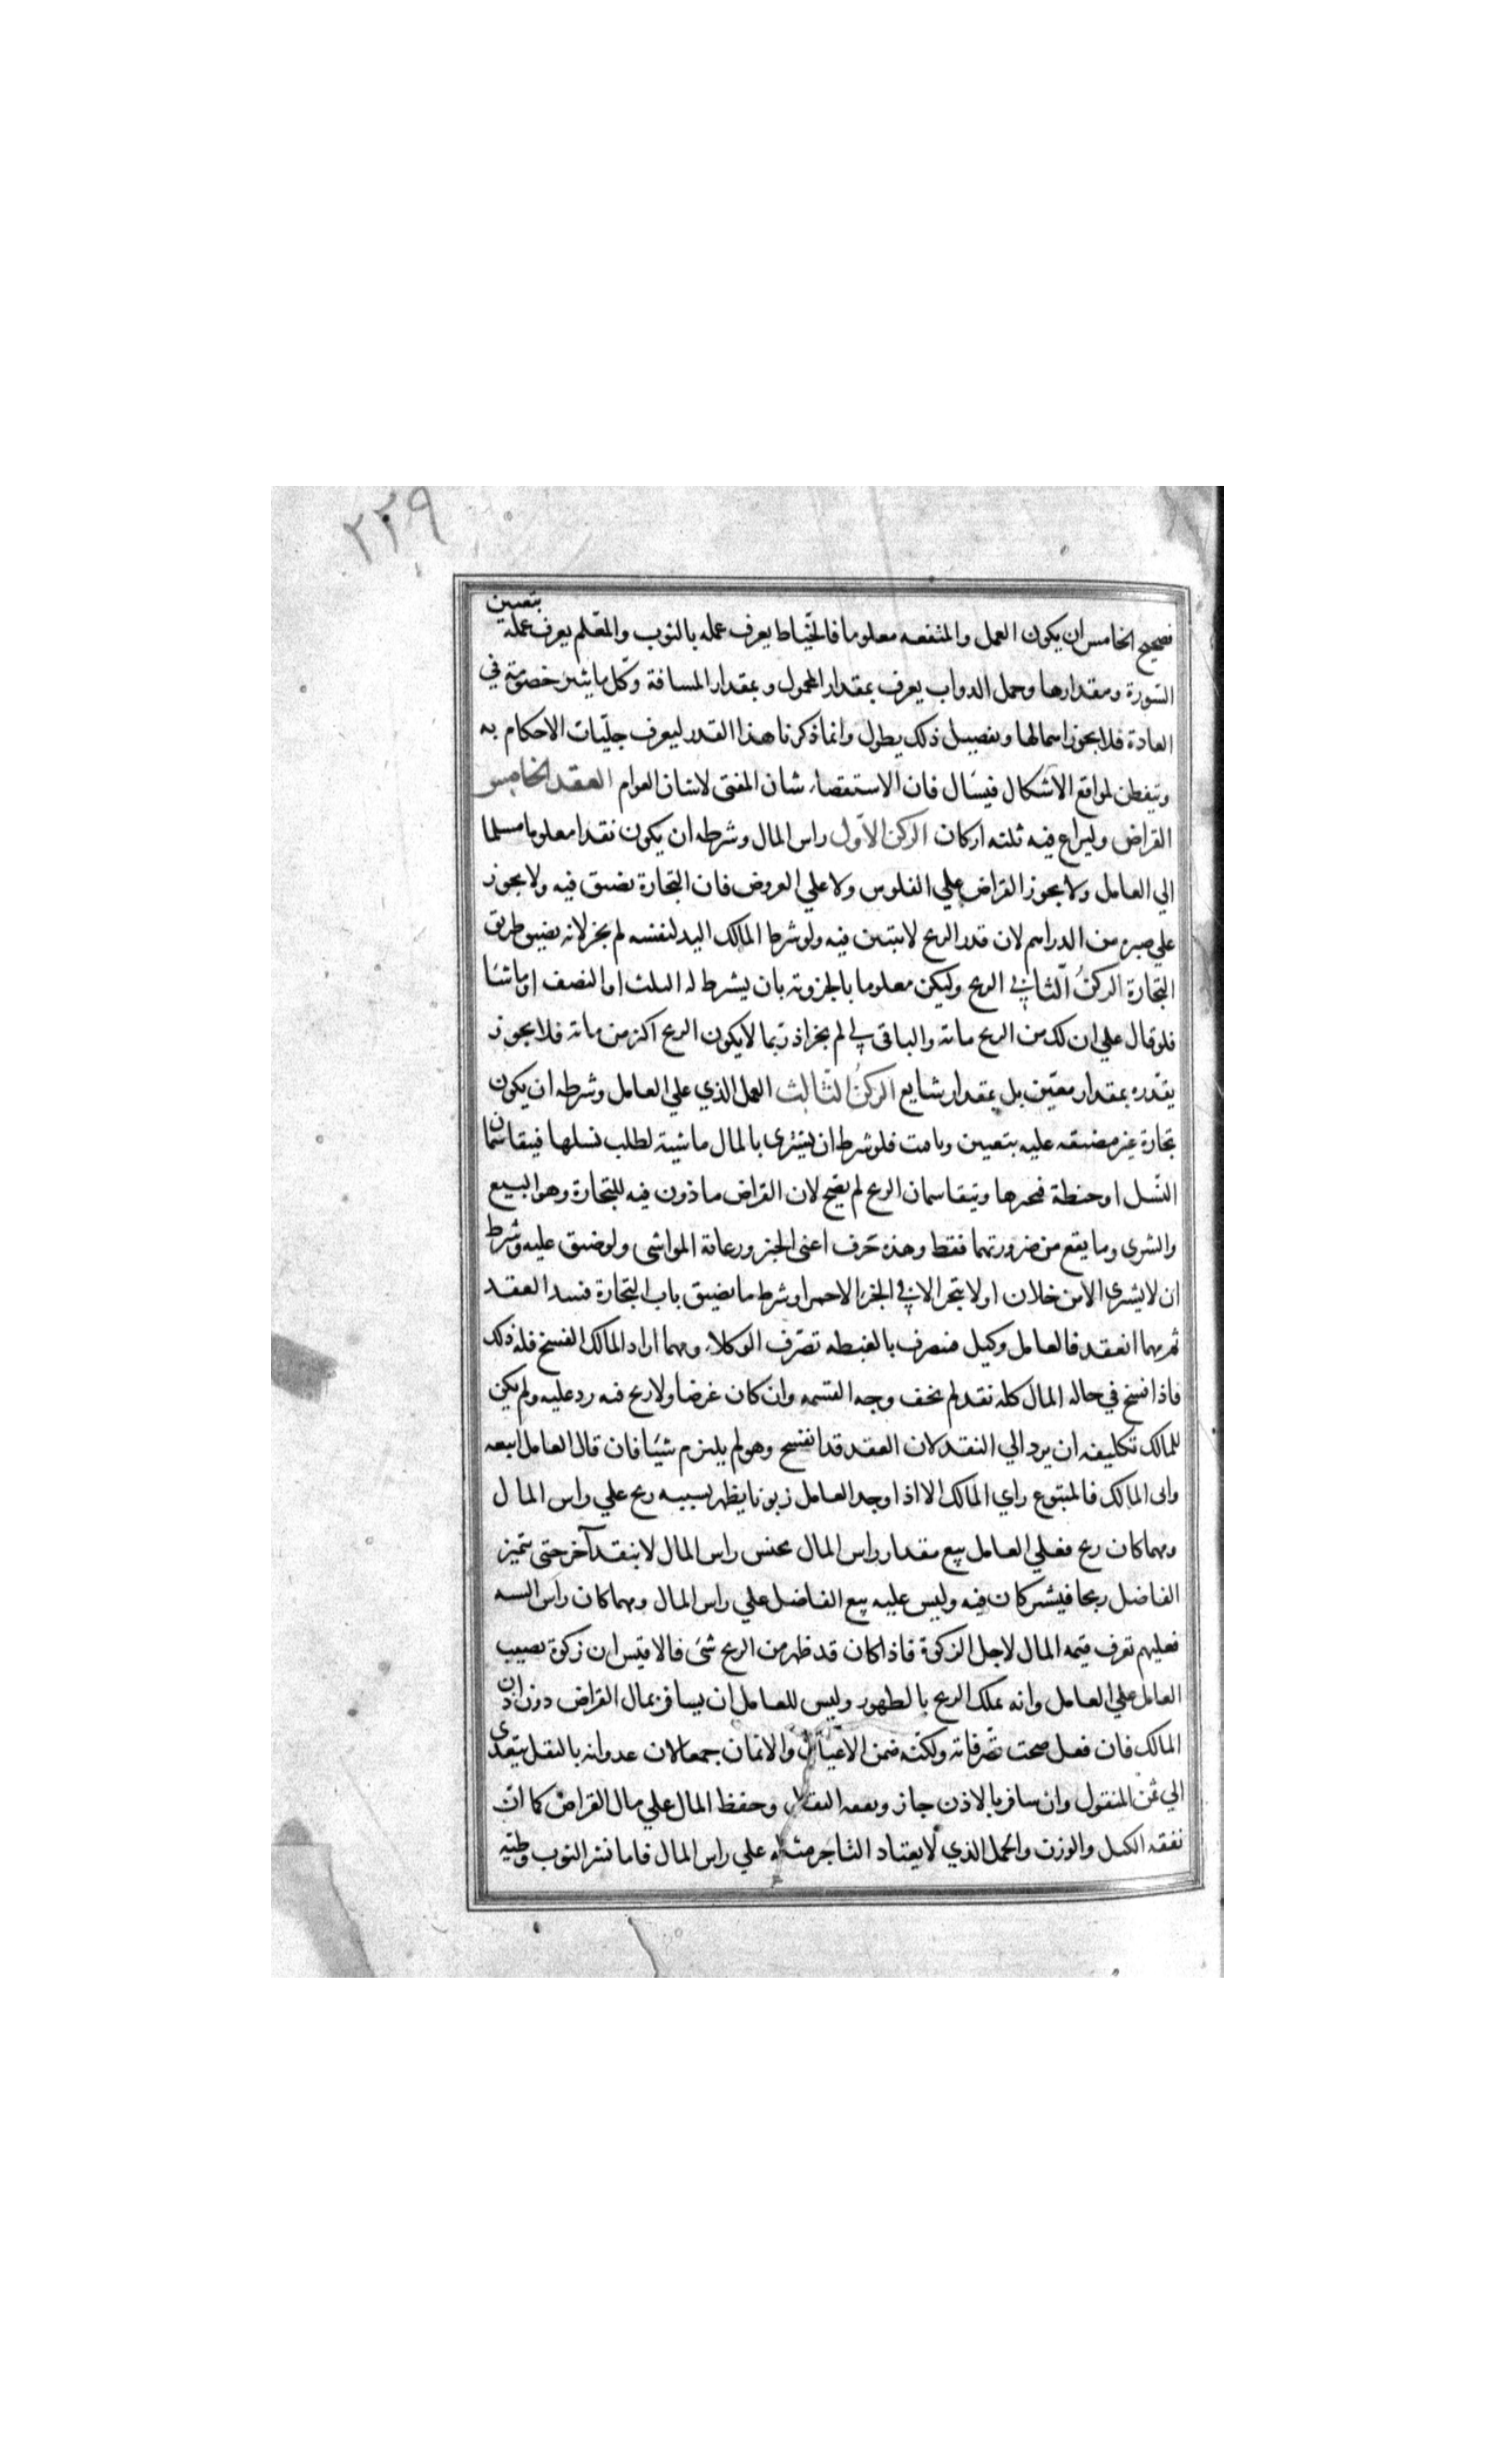 ٢٢٩
فصحيح الخامس ان يكون العمل والمنفعه معلوما فالخيّاط يعرف عمله بالثوب والمعّلم يعرف عمله بتعيين
السّورة ومقدارها وحمل الدواب يعرف بمقدار المحمول وبمقدار المسافة وكّل ما يثير خصومّة في
العادة فلا يجوز اهمالها وتفصيل ذلك يطول وانما ذكرنا هذا القدر ليعرف جلّيات الاحكام به
ويتفطن لمواقع الاشكال فيسَال فان الاستقصاء شان المفتى لا شان العوام العقد الخامس
القراض وليراع فيه ثلثه اركان الركن الاّول راس المال وشرطه ان يكون نقدا معلوما مسلما
الي العامل ولا يجوز القراض علي الفلوس ولا علي العروض فان التجارة تضيق فيه ولا يجوز
علي صبرة من الدراهم لان قدر الربح لا يتبين فيه ولو شرط المالك اليد لنفسه لم يجز لانه تضيق طريق
التجارة الركنُ الّثاني الربح وليكن معلوما بالجزوية بان يشرط له الثلث او النصف او ما شَا
فلو قال علي ان لك من الربح ماية والباقى لي لم يجز اذ رّبما لا يكون الربح اكثر من ماية فلا يجوز
يقّدره بمقدار معيّن بل بمقدار شايع الركنُ الثّالث العمل الذي علي العامل وشرطه ان يكون
تجارة غير مضيقه عليه بتعيين وتاقيت فلو شرط ان يشترى بالمال ماشية لطلب نسلها فيتقاسمان
النّسل او حنطة فيخبزها ويتقاسمان الربح لم يصّح لان القراض ماذون فيه للتجارة وهو البيع
والشرى وما يقع من ضرورتهما فقط وهذه حَرف اعنى الخبز ورعاية المواشى ولو ضيق عليه وشرط
ان لا يشترى الا من فلان او لا يتجر الا في الخز الاحمر او شرط ما يضيق باب التجارة فسد العقد
ثم مهما انعقد فالعامل وكيل فتصرف بالغبطه تصّرف الوكلاء ومهما اراد المالك الفسخ فله ذلك
فاذا فسخ في حاله المال كله نقد لم يخف وجه القسمه وان كان عرضا ولا ربح فيه رد عليه ولم يكن
للمالك تكليفه ان يرد الي النقد لان العقد قد انفسخ وهو لم يلتزم شيَا فان قال العامل ابيعه
وابى المالك فالمتبوع راي المالك الا اذا وجد العامل زبونا يظهر بسببه ربح علي راس المال
ومهما كان ربح فعلي العامل بيع مقدار راس المال بجنس راس المال لا بنقد آخر حتى يتميز
الفاضل ربحا فيشتركان فيه وليس عليه بيع الفاضل علي راس المال ومهما كان راس السنه
فعليهم تعرف قيمه المال لاجل الزكوة فاذا كان قد ظهر من الربح شى فالاقيس ان زكوة نصيب
العامل علي العامل وانه يملك الربح بالظهور وليس للعامل ان يسافر بمال القراض دون اذن
المالك فان فعل صحت تصّرفاته ولكنّه ضمن الاعيان والاثمان جمعا لان عدوانه بالنقل يتعدى
الي ثمن المنقول وان سافر بالاذن جاز ونفقه النقل وحفظ المال علي مال القراض كما انّ
نفقه الكيل والوزن والحمل الذي لا يعتاد التاجر مثله علي راس المال فاما نشر الثوب وطيّه